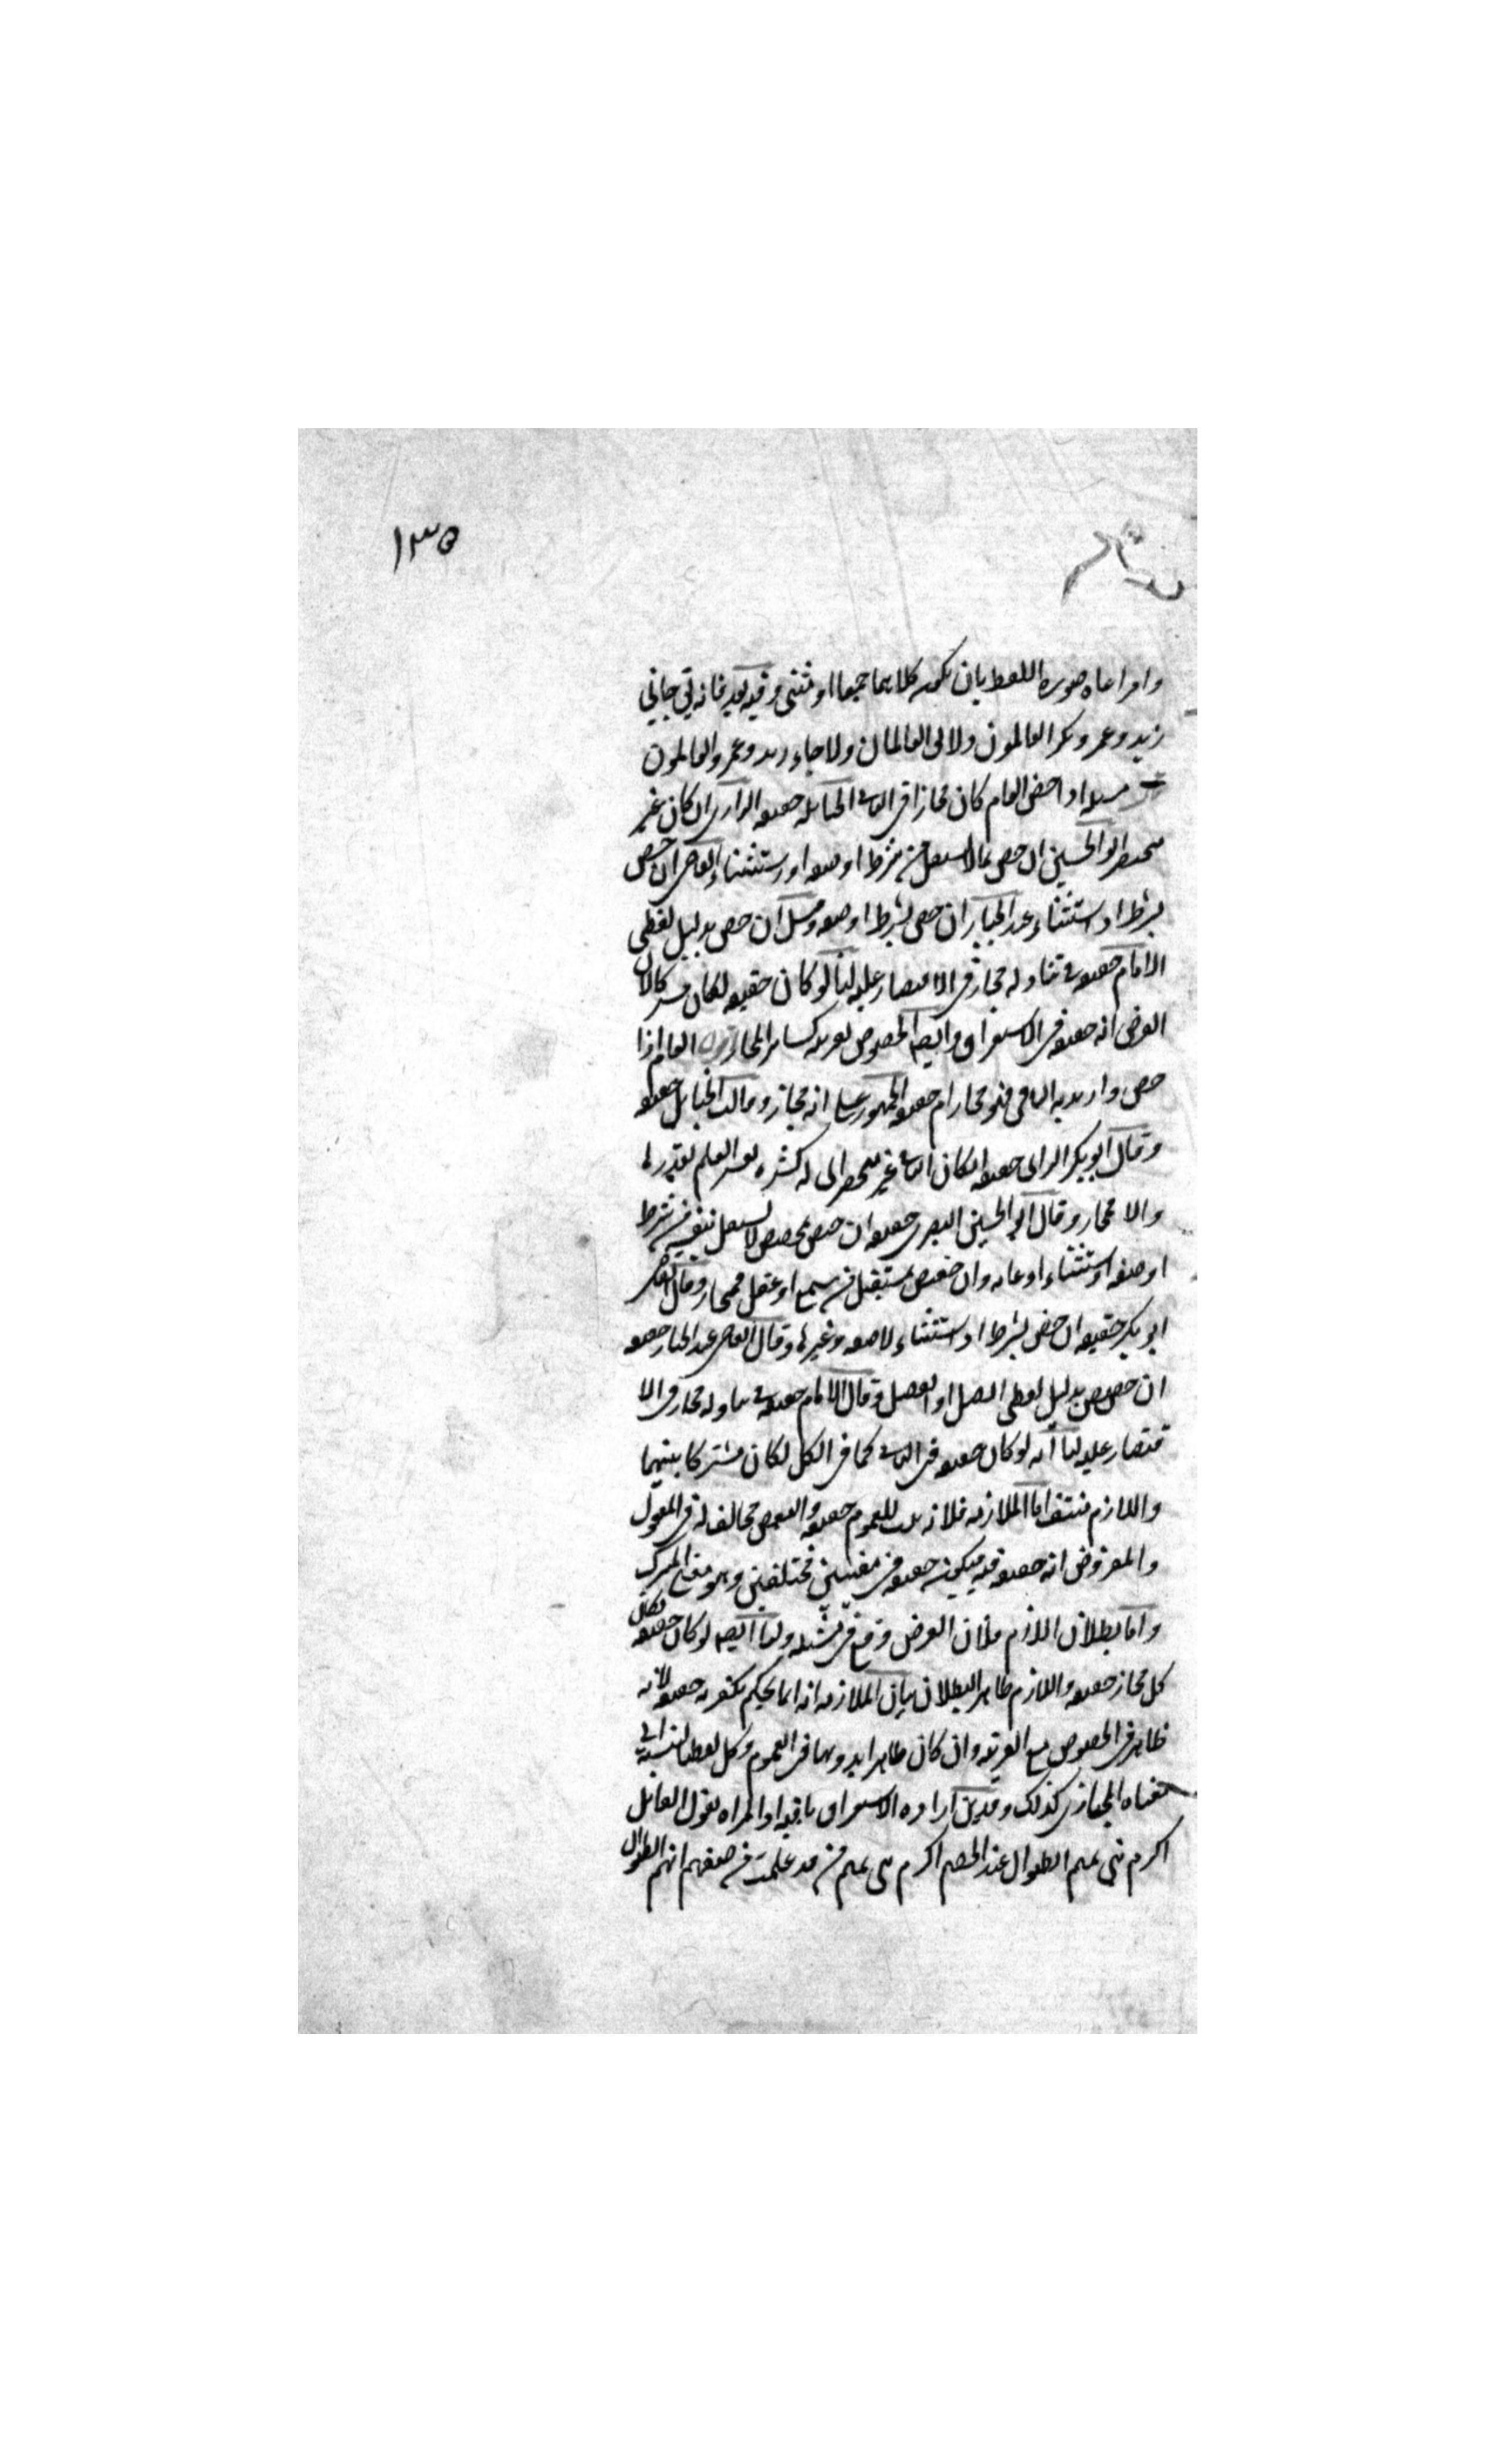 ١٣٥
وامراعاه صوره اللفظ بان يكون كلاهما جميعا او مثنى وفيه بعد فانه يقتى جانى
زيد وعمرو وبكر العالمون ولا العالمان ولا جاء زيد وعمرو العالمون
مسله اذا خص العام كان مجازا فى الباقى الحنابله حقيقه الرازى ان كان غير
منحصر ابو الحسين ان خص بما لا يستقل من شرط او صفه او استثناء القاضى ان خص
بشرط او استثناء عبد الجبار ان خص بشرط او صفه وقيل ان خص بدليل لفظى
الامام حقيقه فى تناوله مجاز فى الاقتصار عليه لنا لو كان حقيقه لكان مشتركا لان
الفرض انه حقيقه فى الاستغراق وايضا الخصوص بقرينه كساير المجاز العام اذا
خص واريد به الباقى فهو مجاز ام حقيقه الجمهور على انه مجاز وقالت الحنابله حقيقه
وقال ابو بكر الرازى حقيقه ان كان الباقى غير منحصر اى له كثره يعسر العلم بقدرها
والا مجاز وقال ابو الحسين البصرى حقيقه ان خص بمخصص لا يستقل بنفسه من شرط
او صفه او استثناء او غايه وان خصص بمستقل من سمع او عقل فمجاز وقال القاضى
ابو بكر حقيقه ان خص بشرط او استثناء لا صفه وغيرها وقال القاضى عبد الجبار حقيقه
ان خصص بدليل لفظى اتصل او انفصل وقال الامام حقيقه فى تناوله مجاز فى الا
قتصار عليه لنا انه لو كان حقيقه فى الباقى كما فى الكل لكان مشتركا بينهما
واللازم منتف اما الملازمه فلانه ثبت للعموم حقيقه والبعض مخالف له فى المفهوم
والمفروض انه حقيقه فيه فيكون حقيقه فى معنيين مختلفين وهو معنى المشترك
واما بطلان اللازم فلان الفرض وقع فى مثله ولنا ايضا لو كان حقيقه لكان
كل مجاز حقيقه واللازم ظاهر البطلان بيان الملازمه انه انما يحكم بكونه حقيقه لانه
ظاهر فى الخصوص مع القرينه وان كان ظاهرا بدونها فى العموم وكل لفظ بالنسبة الى
معناه المجازى كذلك وقد يقال اراده الاستغراق باقيه اذ المراد بقول القائل
اكرم بنى تميم الطوال عند الخصم اكرم بنى تميم من قد علمت من صفتهم انهم الطوال